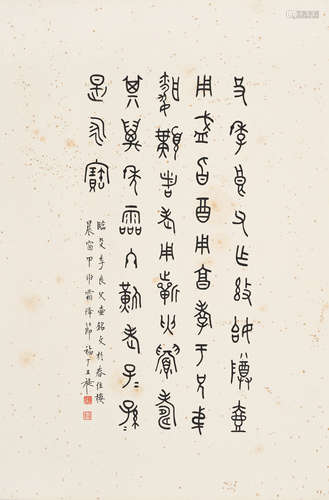 殳季良父乍姒尊壺
用盛旨酉用享孝于兄弟
婚媾者老用旂匄眉壽
其萬年霝冬難老子孫
是永寶
臨殳季良父壺銘文於春住樓
晨窗甲申霜降節福厂王禔